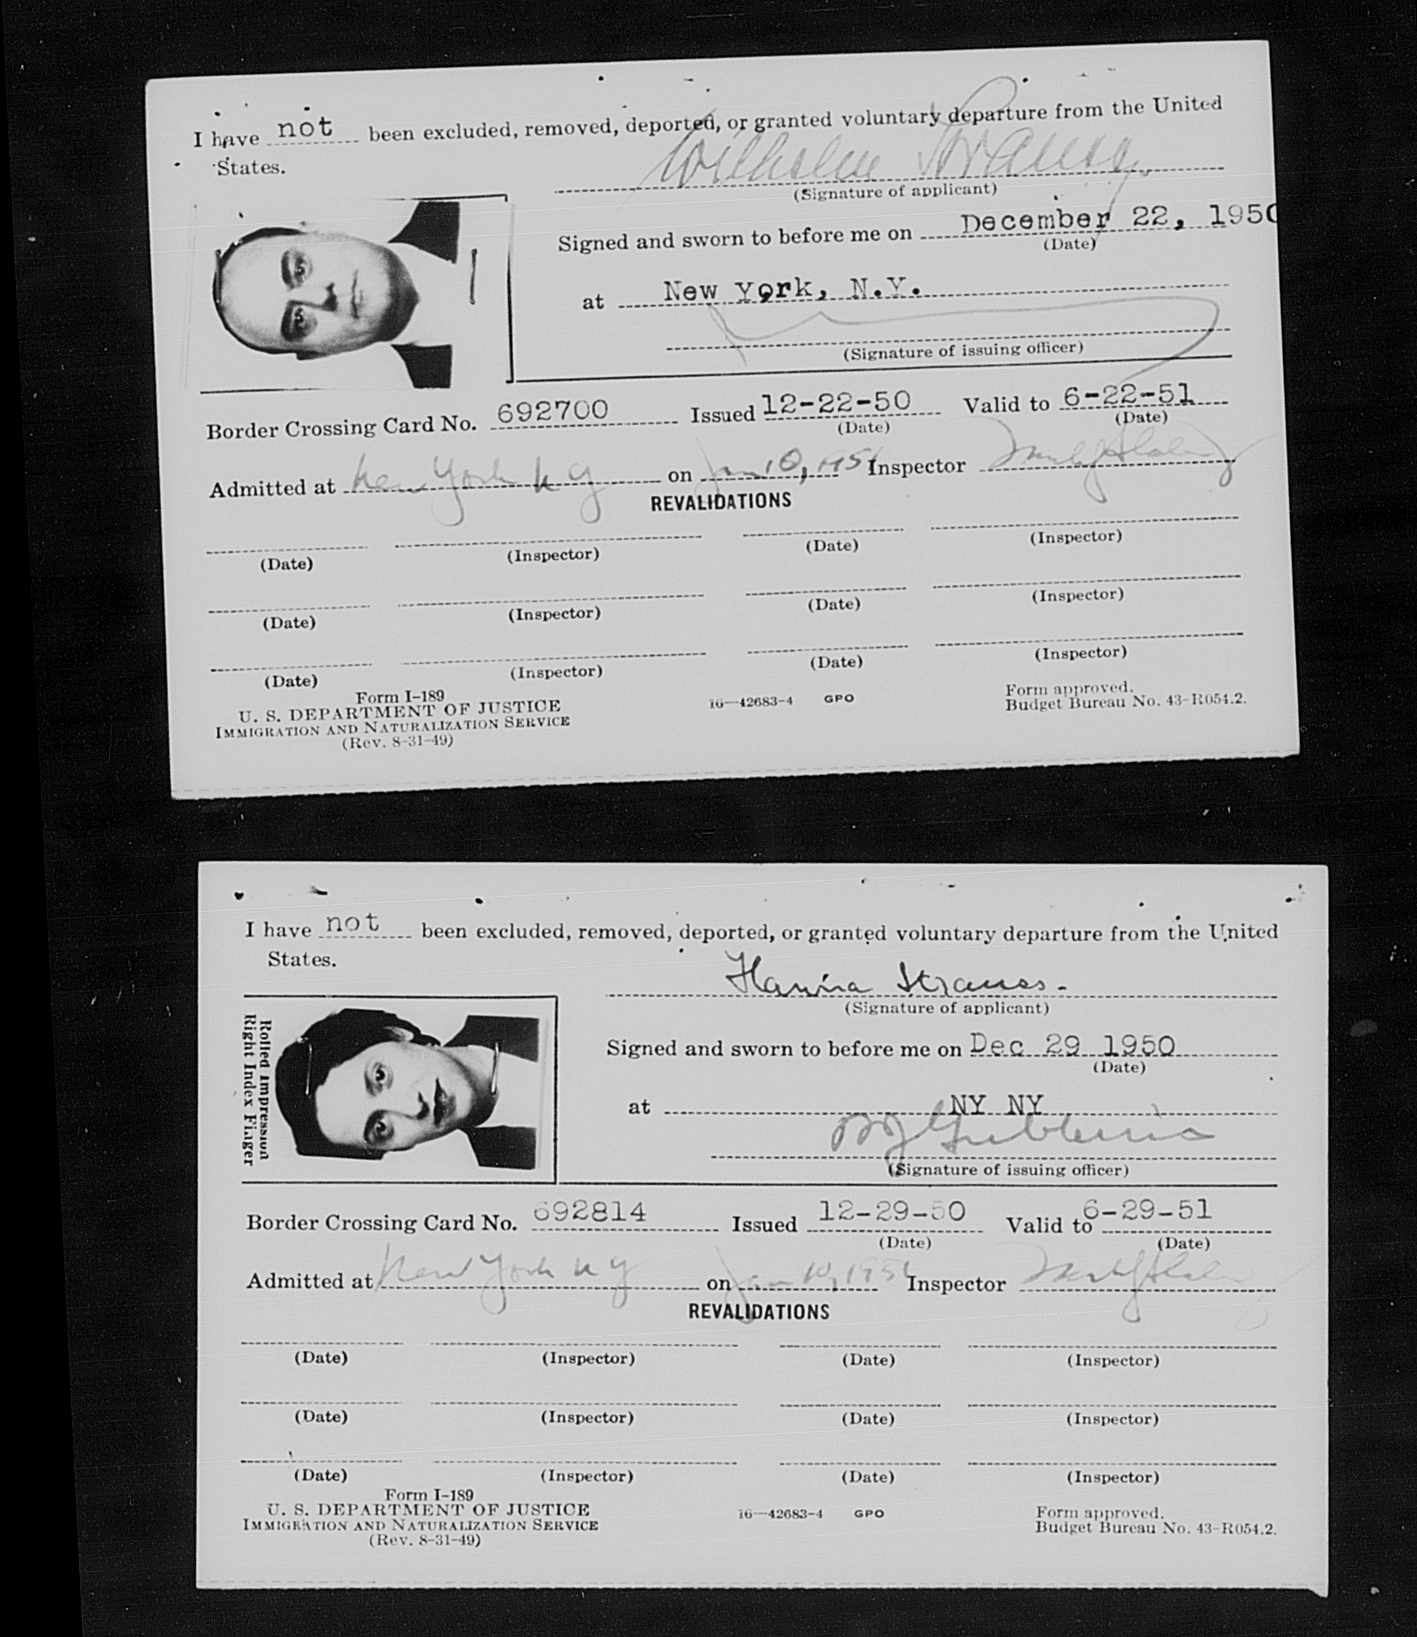 I have not been excluded, removed, deported, or granted voluntary departure from the United
States.
Wilhelm Strauss
(Signature of applicant)
Signed and sworn to before me on December 22, 1950
(Date)
at New York, N.Y.
(Signature of issuing officer)
Border Crossing Card No. 692700 Issued 12-22-50 Valid to 6-22-51
(Date) (Date)
Admitted at New York N Y on Jan 10, 1951 Inspector
REVALIDATIONS
(Date) (Inspector) (Date) (Inspector)
(Date) (Inspector) (Date) (Inspector)
(Date) (Inspector) (Date) (Inspector)
Form I-189
U. S. DEPARTMENT OF JUSTICE
IMMIGRATION AND NATURALIZATION SERVICE
(Rev. 8-31-49)
16—42683-4 GPO
Form approved.
Budget Bureau No. 43-R054.2.
I have not been excluded, removed, deported, or granted voluntary departure from the United
States.
Hanna Strauss.
(Signature of applicant)
Rolled Impression
Right Index Finger
Signed and sworn to before me on Dec 29 1950
(Date)
at NY NY
(Signature of issuing officer)
Border Crossing Card No. 692814 Issued 12-29-50 Valid to 6-29-51
(Date) (Date)
Admitted at New York N Y on Jan 10, 1951 Inspector
REVALIDATIONS
(Date) (Inspector) (Date) (Inspector)
(Date) (Inspector) (Date) (Inspector)
(Date) (Inspector) (Date) (Inspector)
Form I-189
U. S. DEPARTMENT OF JUSTICE
IMMIGRATION AND NATURALIZATION SERVICE
(Rev. 8-31-49)
16—42683-4 GPO
Form approved.
Budget Bureau No. 43-R054.2.